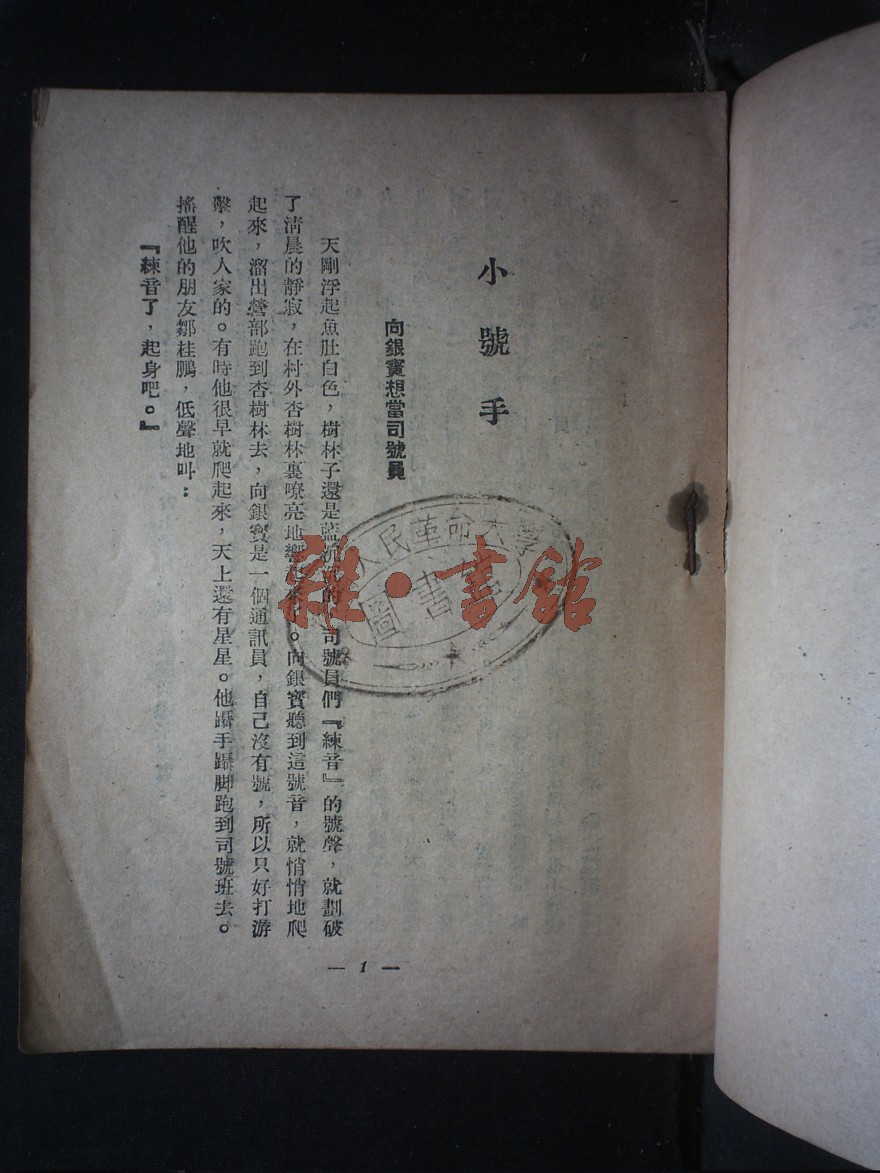 小號手
向銀寶想當司號員
天剛浮起魚肚白色，樹林子還是藍 的，司號員們『練音』的號聲，就劃破
了清晨的靜寂，在村外杏樹林裏嘹亮地響 。向銀寶聽到這號音，就悄悄地爬
起來，溜出營部跑到杏樹林去，向銀寶是一個通訊員，自己沒有號，所以只好打游
擊，吹人家的。有時他很早就爬起來，天上還有星星。他躡手躡脚跑到司號班去。
搖醒他的朋友鄒桂鵬，低聲地叫：
『練音了，起身吧。』
— 1 —
人民革命大學
圖書館
雜·書館